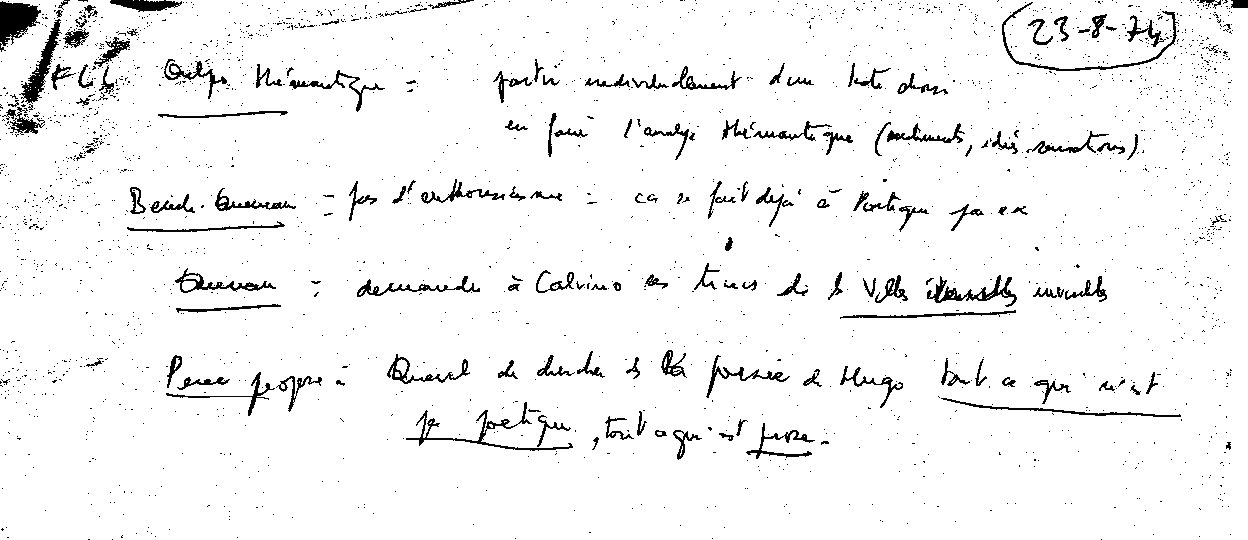 23-8-74
FLL Oulipo thématique = partir individuellement d'un texte choisi
en faire l'analyse thématique (sentiments, idées, sensations).
Queneau = pas d'enthousiasme = ça se fait déjà à Poétique par ex
Queneau = demande à Calvino ses trucs de ds Villes invisibles
Perec propose à Queval de chercher ds la poésie de Hugo tout ce qui n'est
pas poétique, tout ce qui est prose.